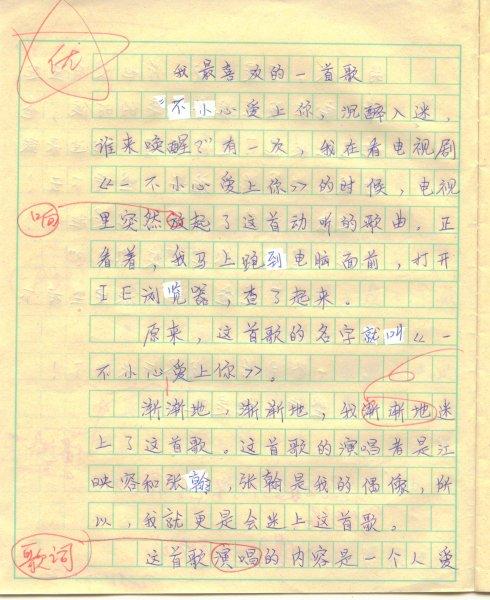 优
我最喜欢的一首歌
“不小心爱上你，沉醉入迷，
谁来唤醒？”有一次，我在看电视剧
《一不小心爱上你》的时候，电视
响
里突然放起了这首动听的歌曲。正
看着，我马上跑到电脑面前，打开
IE浏览器，查了起来。
原来，这首歌的名字就叫《一
不小心爱上你》。
渐渐地，渐渐地，我渐渐地迷
上了这首歌。这首歌的演唱者是江
映容和张翰，张翰是我的偶像，所
以，我就更是会迷上这首歌。
歌词
这首歌演唱的内容是一个人爱